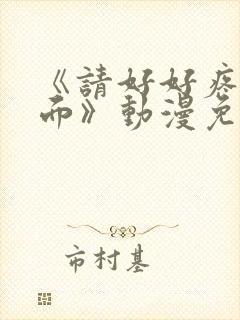 《請好好疼
而》動漫免
市村基